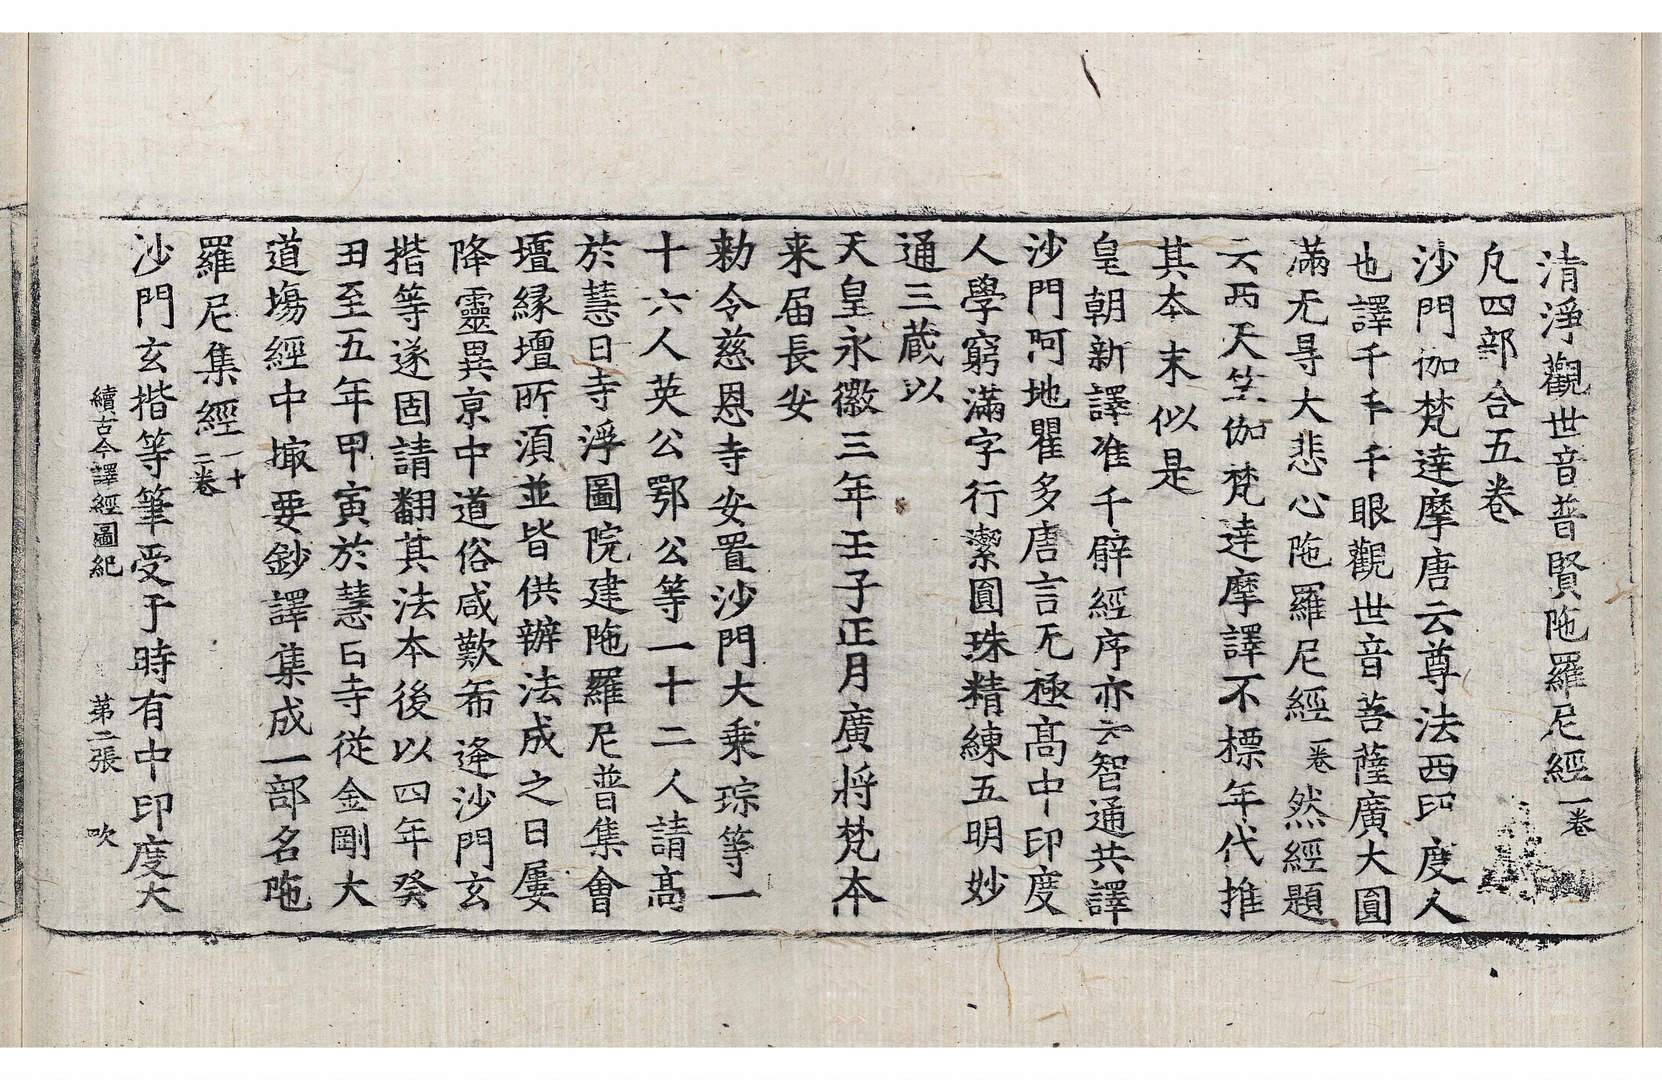 清淨觀世音普賢陁羅尼經一卷
凡四部合五卷
沙門伽梵達摩唐云尊法西印度人
也譯千手千眼觀世音菩薩廣大圓
滿无㝵大悲心陁羅尼經一卷然經題
云西天竺伽梵達摩譯不標年代推
其本末似是
皇朝新譯准千臂經序亦云智通共譯
沙門阿地瞿多唐言无極髙中印度
人學窮滿字行潔圓珠精練五明妙
通三蔵以
天皇永徽三年壬子正月廣將梵本
来届長安
勅令慈恩寺安置沙門大乗琮等一
十六人英公鄂公等一十二人請髙
於慧日寺浮圖院建陁羅尼普集會
壇縁壇所湏並皆供辦法成之日屢
降靈異京中道俗咸歎希逢沙門玄
揩等遂固請翻其法本後以四年癸
丑至五年甲寅於慧日寺從金剛大
道塲經中撮要鈔譯集成一部名陁
羅尼集經一十二卷
沙門玄揩等筆受于時有中印度大
續古今譯經圖紀 第二張 吹